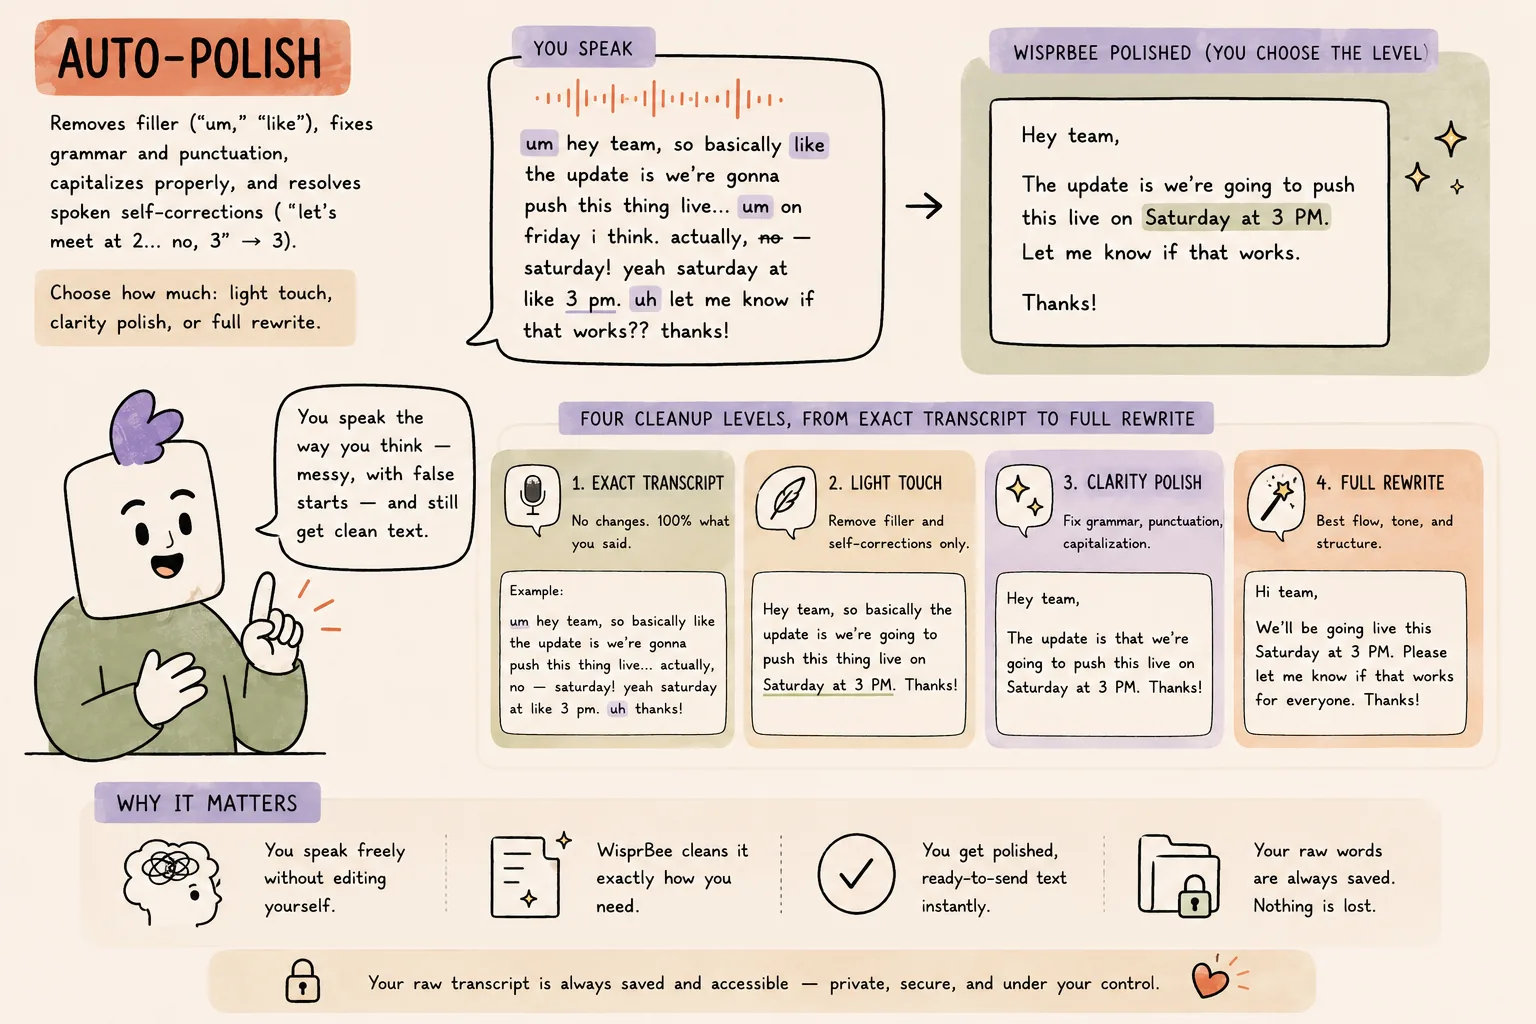 AUTO-POLISH
Removes filler (“um,” “like”), fixes
grammar and punctuation,
capitalizes properly, and resolves
spoken self-corrections ( “let’s
meet at 2... no, 3” → 3).
Choose how much: light touch,
clarity polish, or full rewrite.
YOU SPEAK
um hey team, so basically like
the update is we’re gonna
push this thing live... um on
friday i think. actually, no —
saturday! yeah saturday at
like 3 pm. uh let me know if
that works?? thanks!
WISPRBEE POLISHED (YOU CHOOSE THE LEVEL)
Hey team,
The update is we’re going to push
this live on Saturday at 3 PM.
Let me know if that works.
Thanks!
You speak the
way you think —
messy, with false
starts — and still
get clean text.
FOUR CLEANUP LEVELS, FROM EXACT TRANSCRIPT TO FULL REWRITE
1. EXACT TRANSCRIPT
No changes. 100% what
you said.
Example:
um hey team, so basically like
the update is we’re gonna
push this thing live... actually,
no — saturday! yeah saturday
at like 3 pm. uh thanks!
2. LIGHT TOUCH
Remove filler and
self-corrections only.
Hey team, so basically the
update is we’re going to
push this thing live on
Saturday at 3 PM. Thanks!
3. CLARITY POLISH
Fix grammar, punctuation,
capitalization.
Hey team,
The update is that we’re
going to push this live on
Saturday at 3 PM. Thanks!
4. FULL REWRITE
Best flow, tone, and
structure.
Hi team,
We’ll be going live this
Saturday at 3 PM. Please
let me know if that works
for everyone. Thanks!
WHY IT MATTERS
You speak freely
without editing
yourself.
WisprBee cleans it
exactly how you
need.
You get polished,
ready-to-send text
instantly.
Your raw words
are always saved.
Nothing is lost.
Your raw transcript is always saved and accessible — private, secure, and under your control.